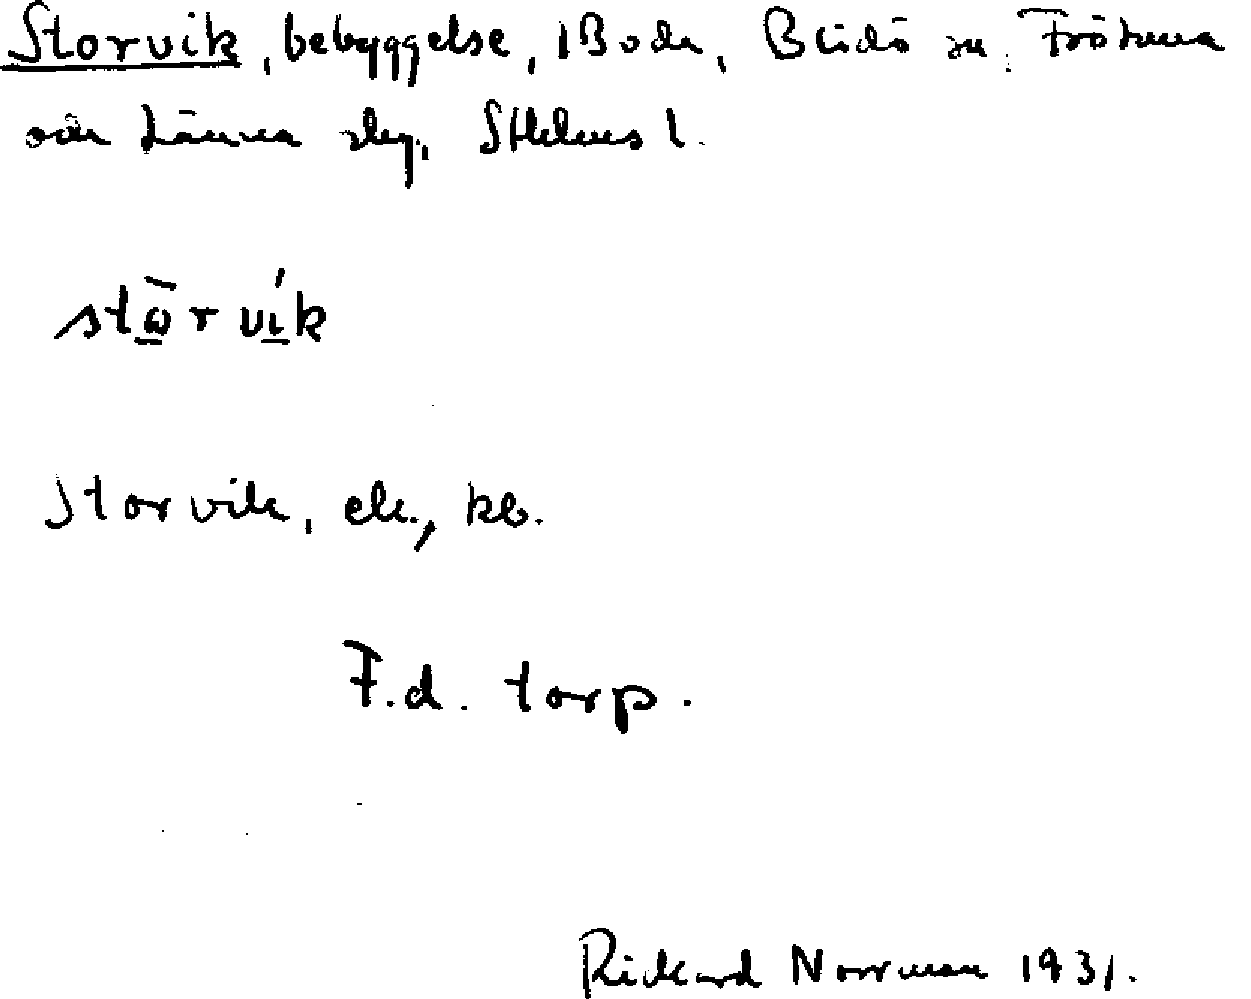 Storvik, bebyggelse, Boda, Blidö sn. Frötuna
och Länna skg, Sthlms l.
stω̄r vík
Storvik, ek., kb.
F.d. torp.
Rickard Norrman 1931.